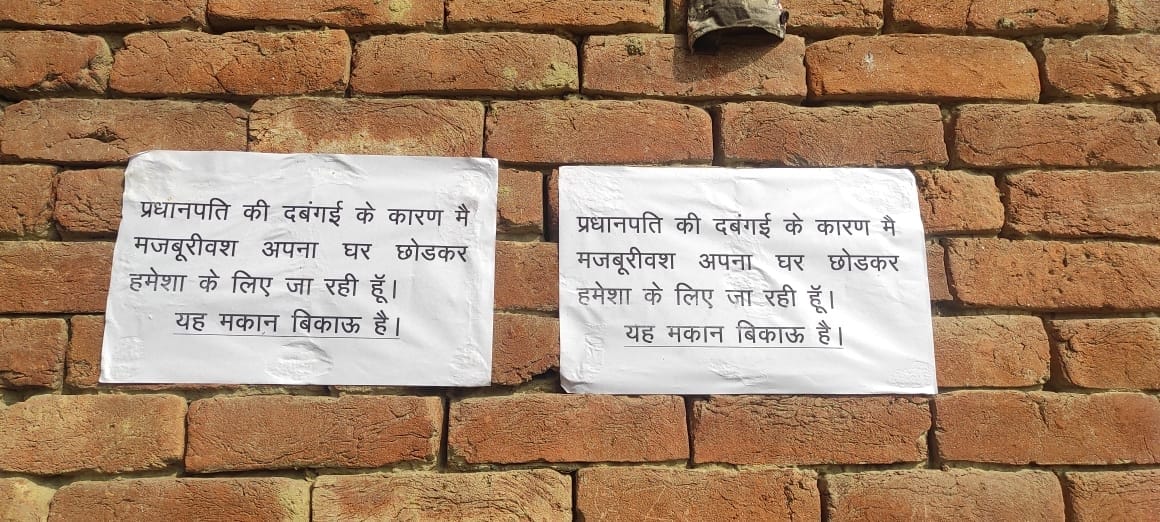 प्रधानपति की दबंगई के कारण मै
मजबूरीवश अपना घर छोडकर
हमेशा के लिए जा रही हूॅ।
यह मकान बिकाऊ है।
प्रधानपति की दबंगई के कारण मै
मजबूरीवश अपना घर छोडकर
हमेशा के लिए जा रही हूॅ।
यह मकान बिकाऊ है।